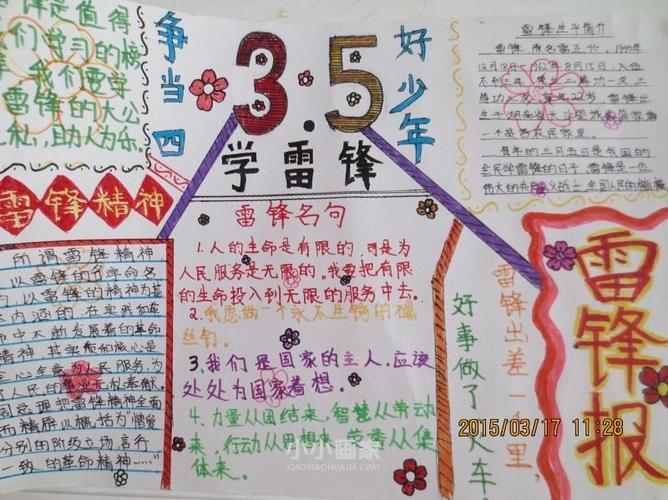 锋是值得
们学习的榜
我们要学
雷锋的大公
私,助人为乐。
争当四
好少年
3.5
学雷锋
雷锋生平简介
雷锋,原名雷正兴,1940年
12月18日-1962年8月15日,
一个贫苦农民家里。
每年的三月五日是我国的
全民学雷锋的日子,雷锋是一
雷锋精神
所谓雷锋精神
以雷锋的名字命名
以雷锋的精神为基
本内涵的,在实践如
中不断发展着的革命
精神,其实质和核心是
心全意为人民服务,为
了人民的事业无私奉献。
周总理把雷锋精神全面
而精辟以概括为“憎爱
分明的阶级立场言行
一致的革命精神……”
雷锋名句
1.人的生命是有限的,可是为
人民服务是无限的。我要把有限
的生命投入到无限的服务中去。
2.我愿做一个永不生锈的螺
丝钉。
3.我们是国家的主人,应该
处处为国家着想。
4.力量从团结来,智慧从劳动
来,行动从思想来,荣誉从集
体来。
雷锋出差一千里,
好事做了一火车
雷锋报
2015/03/17 11:28
小小画家
XIAOXIAOHUAJIA.COM